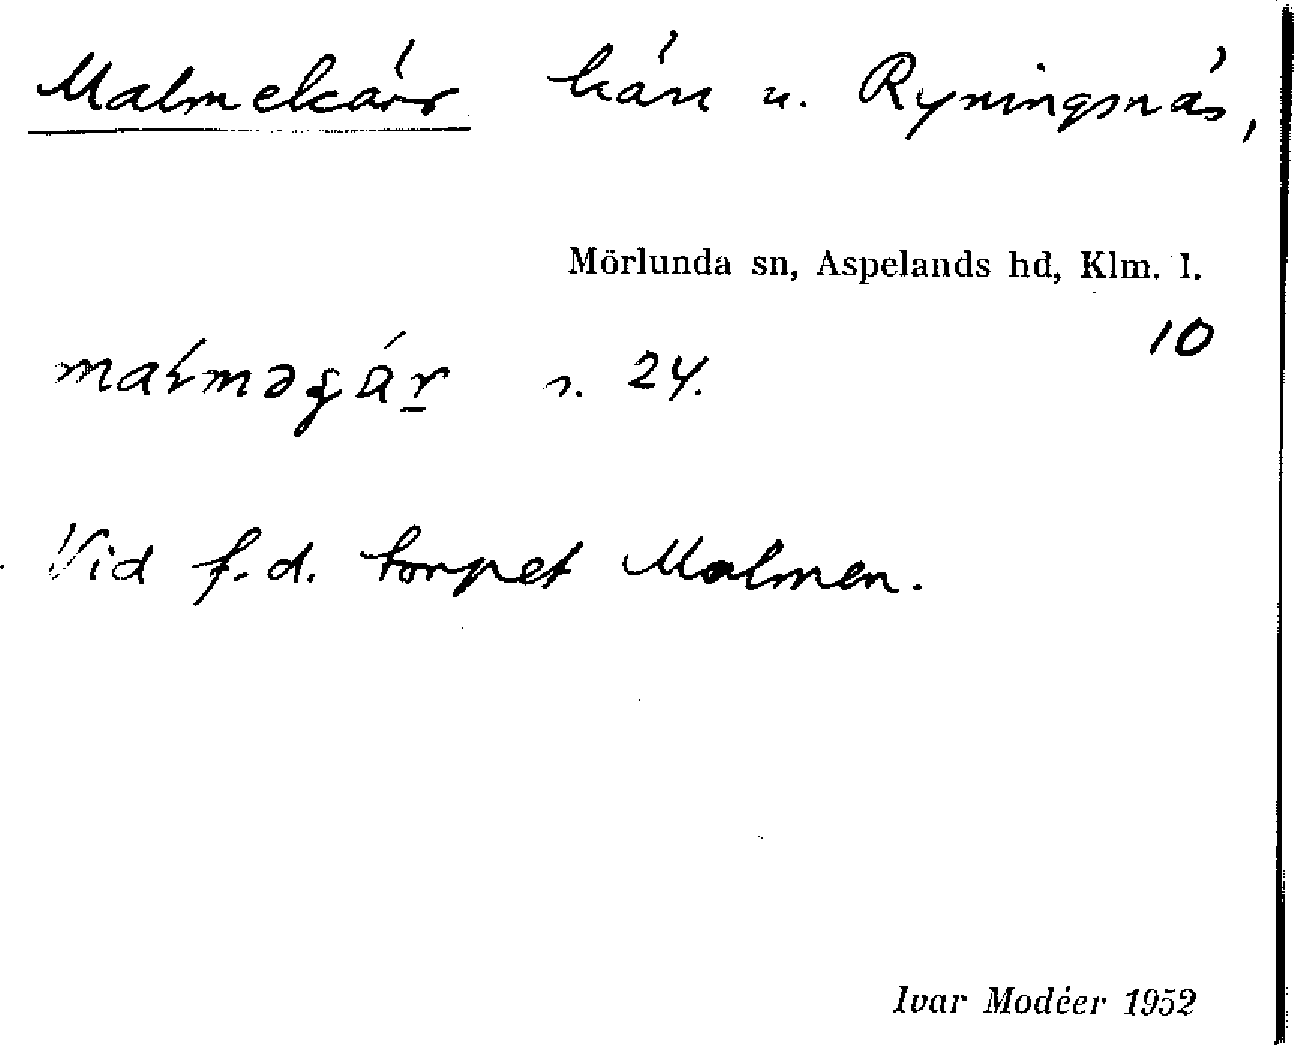 Malmekärr kärr u. Ryningsnäs,
Mörlunda sn, Aspelands hd, Klm. l.
10
s. 24.
Vid f.d. torpet Malmen.
Ivar Modéer 1952